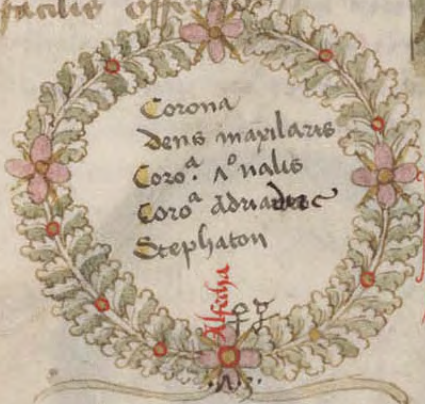 facilis
Corona
dens maxilaris
Coroᵃ. Aᵒnalis
Coroᵃ adriadne
Stephaton
Alfecha
♀ ☿
.Λ.